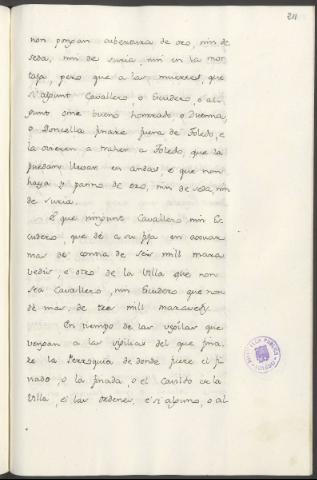 211
non pongan cobertura de oro, nin de
seda, nin de suria, nin en la mor
taja, pero que a las mugeres, que
si algunt Cavallero, o Escudero, o al
gunt ome bueno honrado o Duenna,
o Doncella finare fuera de Toledo, e
la ovieren a traher a Toledo, que la
puedan llevar en andas, e que non
haya y panno de oro, nin de seda, nin
de suria.
E que ningunt Cavallero nin Es
cudero, que dé a su fija en axuar
mas de contia de seis mill mara
vedis, e otro de la Villa que non
sea Cavallero, nin Escudero que non
dé mas, de tres mill maravedis.
En tiempo de las vigilias que
vengan a las vigilias del que fina
re la Perroquia de donde fuere el fi
nado, o la finada, o el Cavildo de la
Villa, e las ordenes, e si alguno, o al